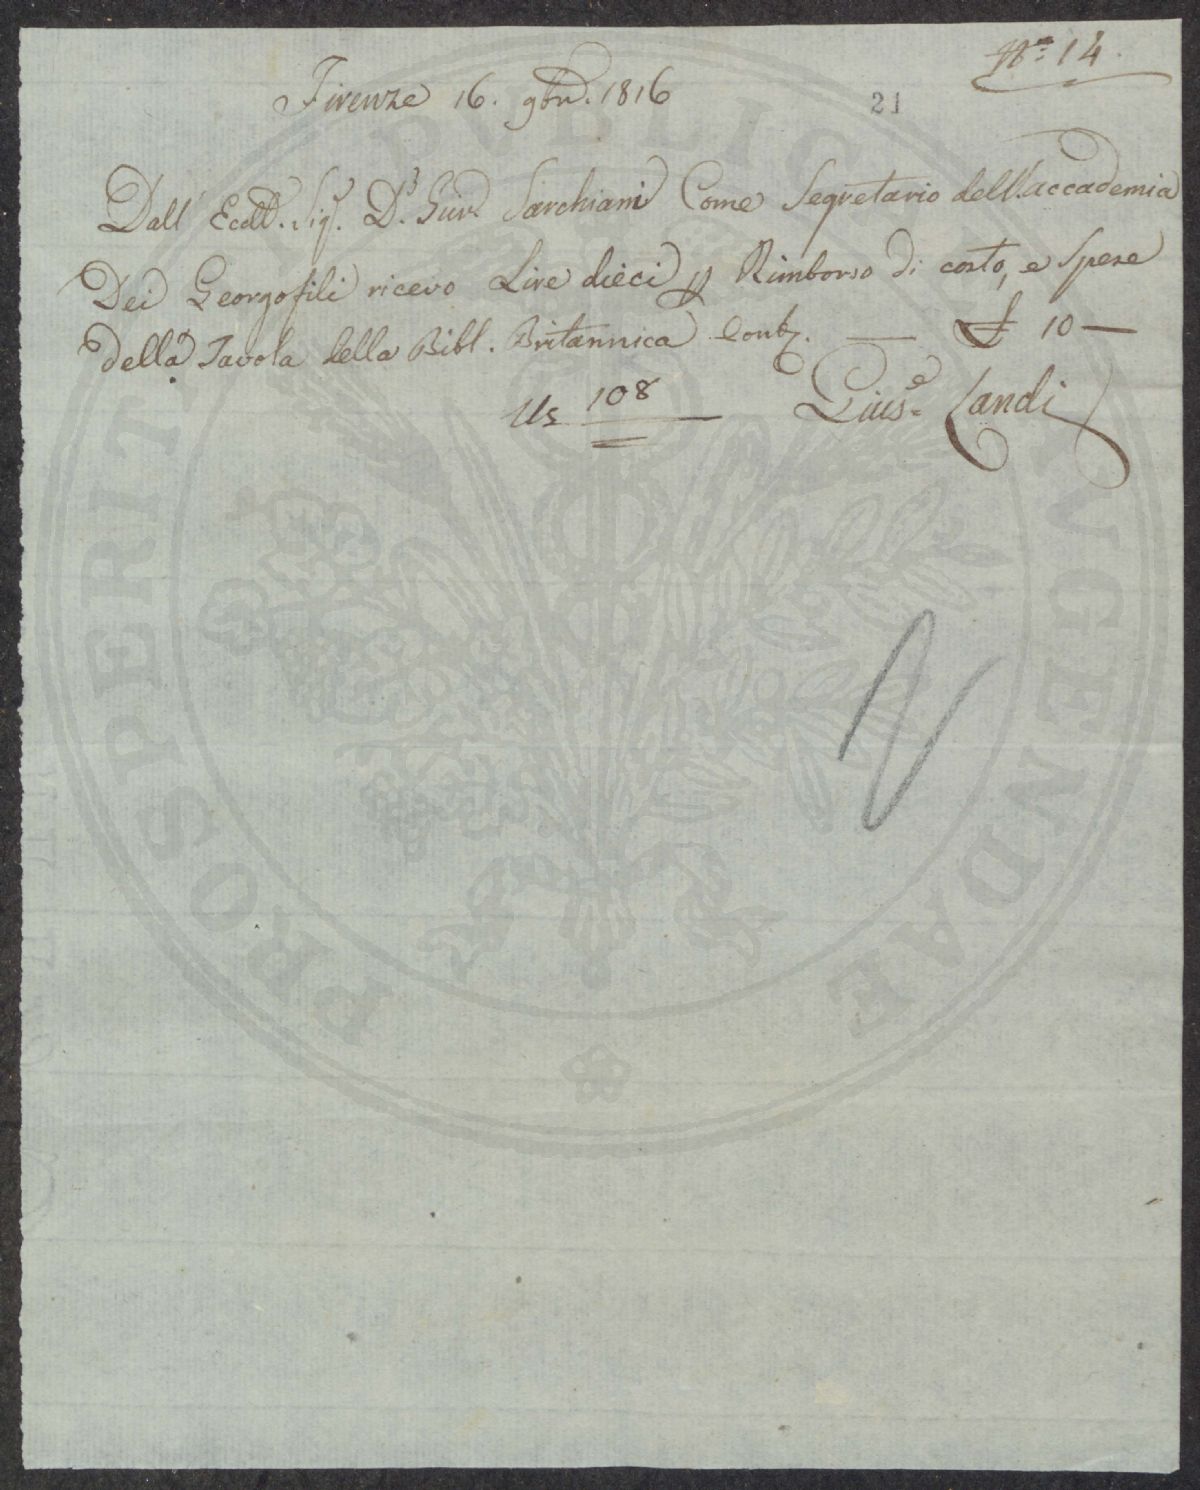 N.° 14.
Firenze 16. 9bre. 1816
21
Dall' Eccell. Sig. D.r Giu.e Sarchiani Come Segretario dell'accademia
Dei Georgofili ricevo Lire dieci p Rimborso di costo, e spese
della Tavola della Bibl. Britannica Cont. — £ 10 —
Us 108
Gius.e Landi
PROSPERITATI PVBLICAE AVGENDAE